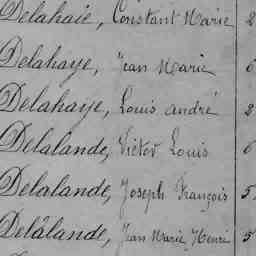 Delahaie, Constant Marie 2
Delahaye, Jean Marie 6
Delahaye, Louis André 2
Delalande, Victor Louis 6
Delalande, Joseph François 5
Delalande, Jean Marie Henri 5